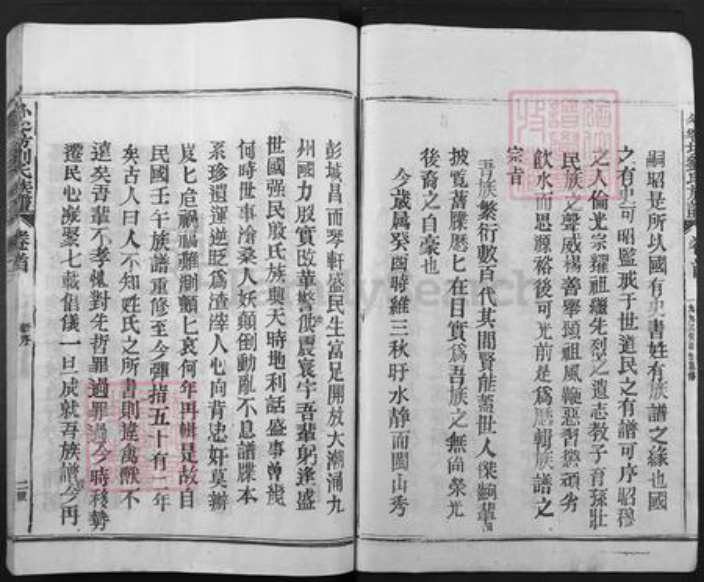 嗣昭是所以國有史書姓有族譜之緣也國
之有史可昭監戒于世道民之有譜可序昭穆
之人倫光宗耀祖繼先烈之遺志教子育孫壯
民族之聲威揚善舉頌祖風鞭惡習懲頑劣
飲水而思源裕後可光前是為歷輯族譜之
宗旨
吾族繁衍數百代其間賢能蓋世人傑嗣輩
披覧舊牒歷匕在目實為吾族之無尚榮光
後裔之自豪也
今歲属癸酉時維三秋盱水静而閩山秀
彭城昌而琴軒盛民生富足開放大潮涌九
州國力殷實改革聲使震寰宇吾輩躬逢盛
世國强民殷氏族興天時地利話盛事曾幾
何時世事滄桑人妖顛倒動亂不息譜牒本
系珍遺運逆貶為渣滓人心向背忠奸莫辦
岌匕危禍福難測顫匕哀何年再輯是故自
民國壬午族譜重修至今彈指五十有二年
矣古人曰人不知姓氏之所書則違禽獸不
遠矣吾輩不孝愧對先哲罪過罪過今時移勢
遷民心凝聚七載倡儀一旦成就吾族譜今再
劉氏族譜
卷首
新序
二號
卷首